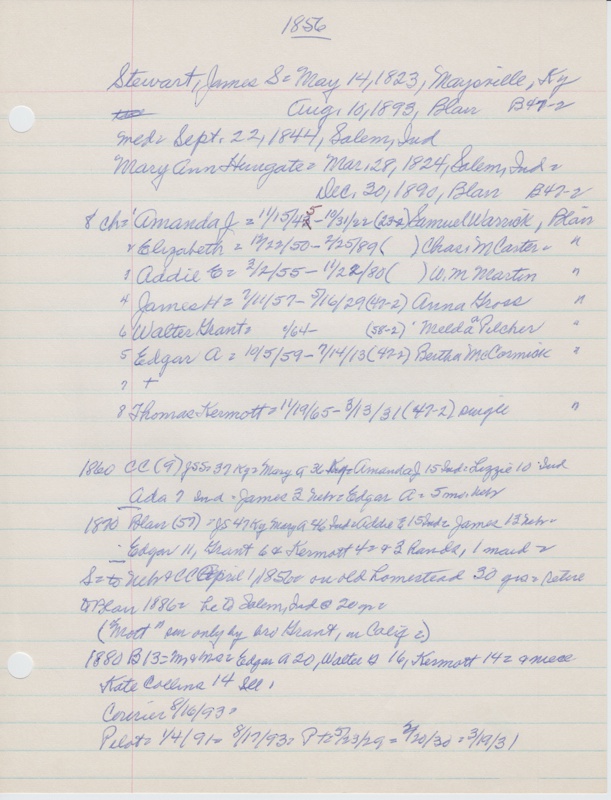 1856
Stewart, James S = May 14, 1823, Maysville, Ky
Aug. 10, 1893, Blair B47-2
med = Sept. 22, 1844, Salem, Ind
Mary Ann Hungate = Mar. 28, 1824, Salem, Ind =
Dec. 30, 1890, Blair B47-2
8 ch = 1 Amanda J = 11/15/45 - 10/31/22 (23-2) Samuel Warrick, Blair
2 Elizabeth = 12/22/50 - 2/25/89 ( ) Chas. M Carter = "
3 Addie E = 3/2/55 - 11/22/80 ( ) W. M Martin "
4 James H = 7/11/57 - 5/16/29 (47-2) Anna Gross "
6 Walter Grant = /64 - (58-2) Melda Pilcher "
5 Edgar A = 10/5/59 - 7/14/13 (47-2) Bertha McCormick "
7 +
8 Thomas Kermott = 11/19/65 - 3/13/31 (47-2) single "
1860 CC (9) JS 37 Ky = Mary A 36 = Amanda J 15 Ind = Lizzie 10 Ind
Ada 7 Ind = James 3 Nebr = Edgar A = 5 mo Nebr
1870 Blair (57) = JS 47 Ky Mary A 46 Ind = Addie E 15 Ind = James 13 Nebr =
Edgar 11, Grant 6 & Kermott 4 = & 3 hands, 1 maid =
S = to Nebr & CC April 1, 1856 = on old homestead 30 yrs = retire
to Blair 1886 = he to Salem, Ind @ 20 yr =
("Mott" sur only by bro Grant, in Calif =)
1880 B 13 = Mr & Mrs = Edgar A 20, Walter G 16, Kermott 14 = & niece
Kate Collins 14 Ill.
Courier 8/16/93 =
Pilot = 1/4/91 = 8/17/93 = P + = 5/23/29 = 2/20/30 = 3/19/31